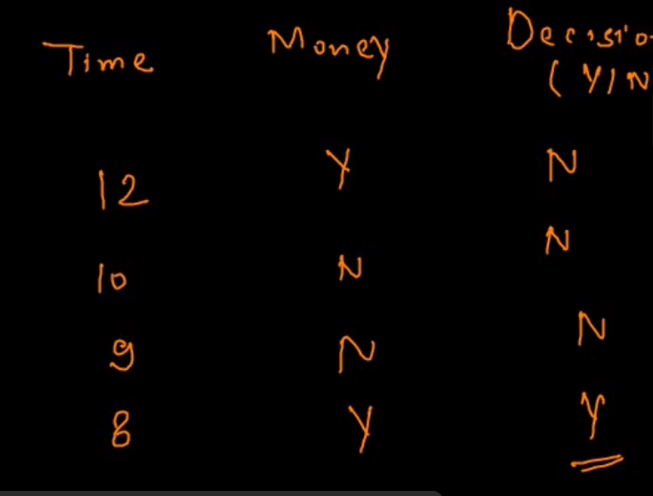 Time Money Decisio
(Y/N
12 Y N
10 N N
9 N N
8 Y Y